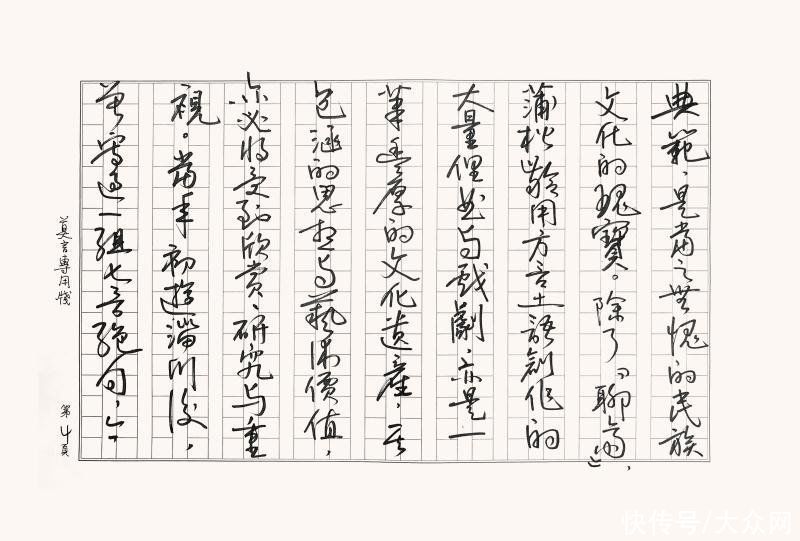 典範，是當之無愧的民族
文化的瑰寶。除了《聊齋》，
蒲松齡用方言土語創作的
大量俚曲与戲劇，亦是一
筆丰厚的文化遺產，其
包涵的思想与藝術價值，
亦必將受到欣賞、研究与重
視。當年初遊淄川後，
曾寫過一組七言絕句，
莫言專用箋
第4頁
快传号/大众网